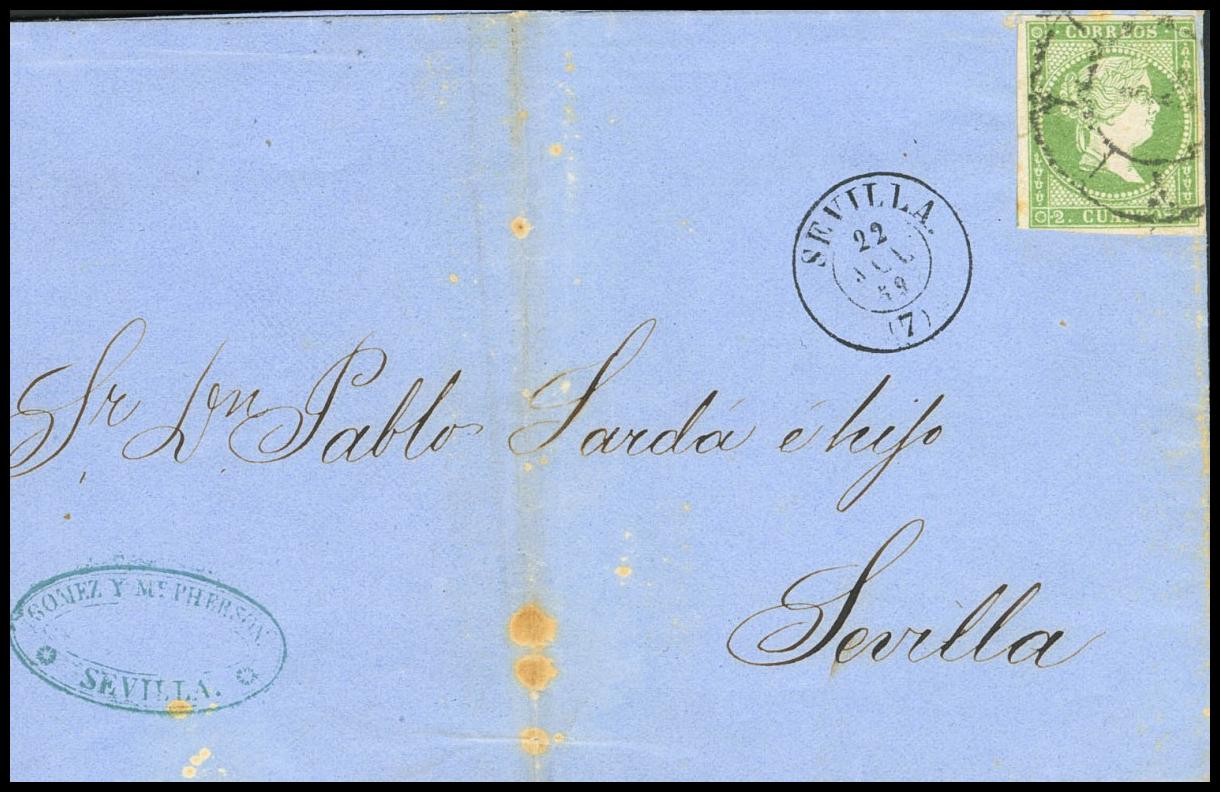 CORREOS
2. CUARTOS
SEVILLA.
22
JUL
59
(7)
Sr. Dn. Pablo Sardá é hijo
Sevilla
GOMEZ Y Mc. PHERSON
SEVILLA.